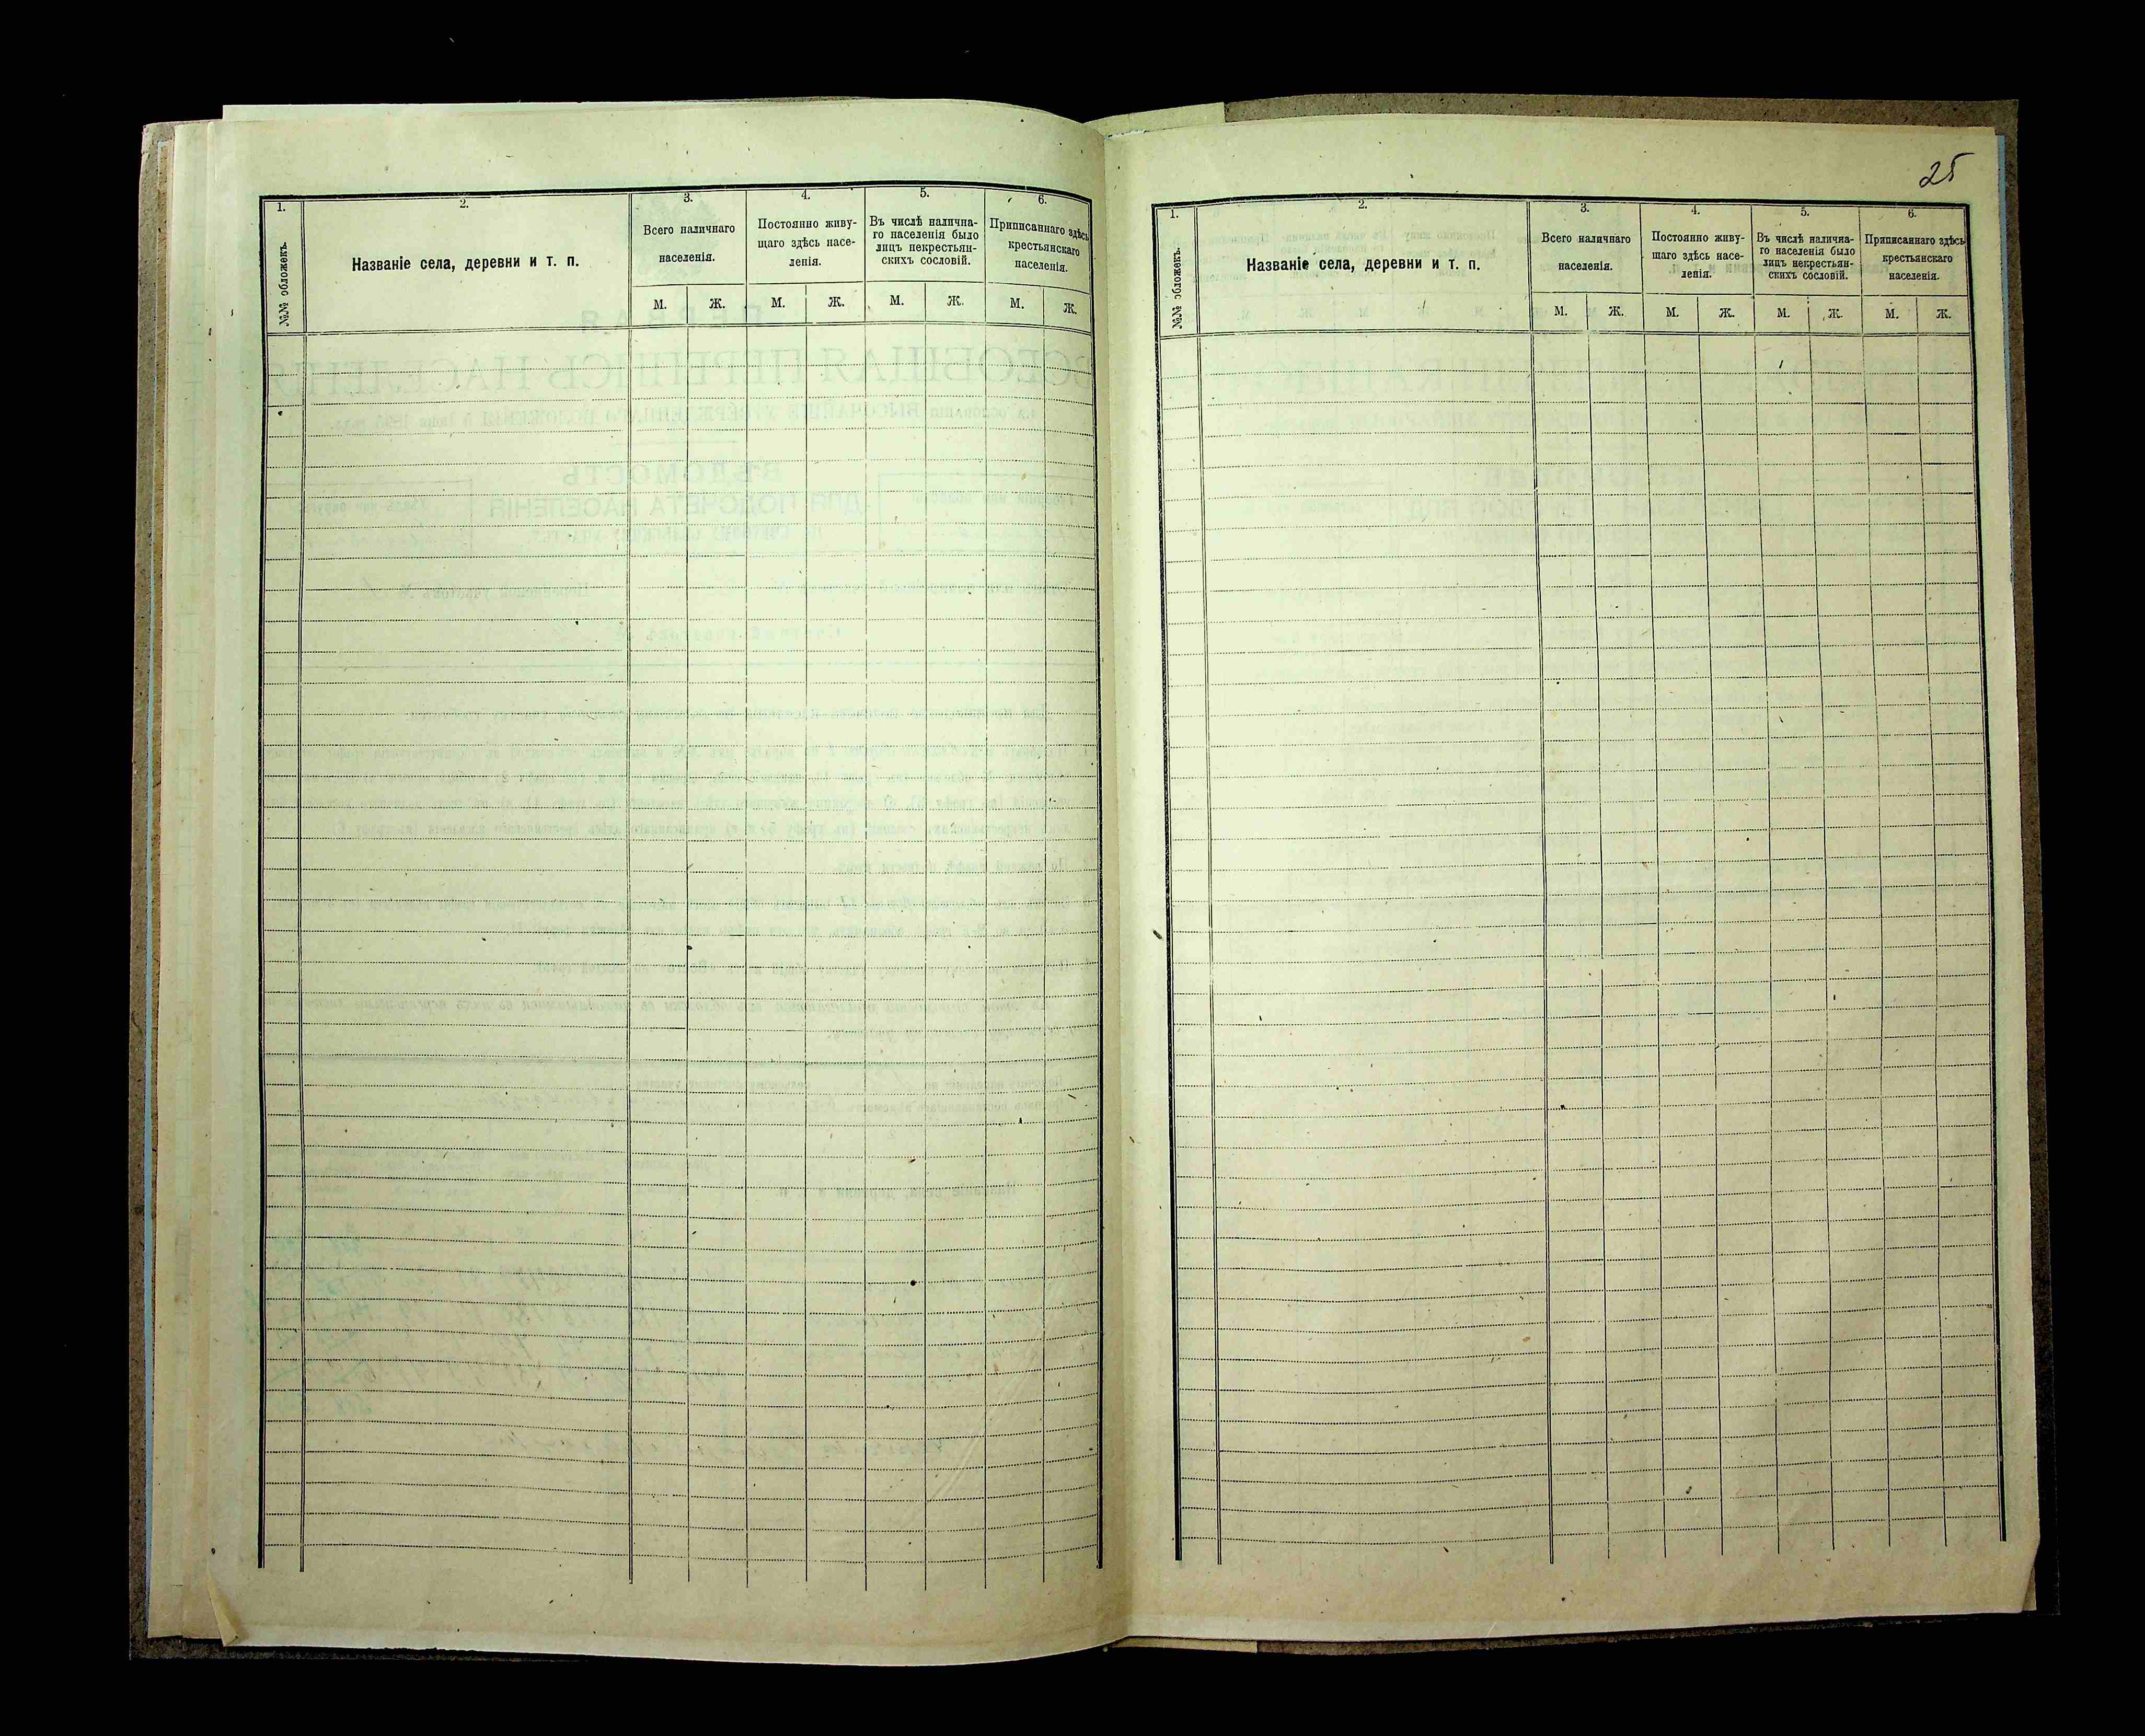 1.
№№ обложекъ.
2.
Названіе села, деревни и т. п.
3.
Всего наличнаго
населенія.
М. Ж.
4.
Постоянно живу-
щаго здѣсь насе-
ленія.
М. Ж.
5.
Въ числѣ налична-
го населенія было
лицъ некрестьян-
скихъ сословій.
М. Ж.
6.
Приписаннаго здѣсь
крестьянскаго
населенія.
М. Ж.
25
1.
№№ обложекъ.
2.
Названіе села, деревни и т. п.
3.
Всего наличнаго
населенія.
М. Ж.
4.
Постоянно живу-
щаго здѣсь насе-
ленія.
М. Ж.
5.
Въ числѣ налична-
го населенія было
лицъ некрестьян-
скихъ сословій.
М. Ж.
6.
Приписаннаго здѣсь
крестьянскаго
населенія.
М. Ж.